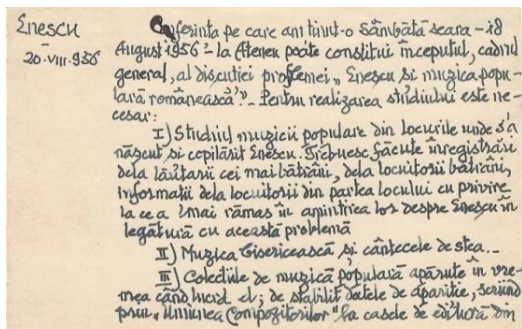 Enescu
–
20·VIII·956
Conferința pe care am ținut-o sâmbătă seara – 18
August 1956 – la Ateneu poate constitui începutul, cadrul
general, al discuției problemei „Enescu și muzica popu-
lară românească”. – Pentru realizarea studiului este ne-
cesar:
I) Studiul muzicii populare din locurile unde s'a
născut și copilărit Enescu. Trebuesc făcute înregistrări
dela lăutarii cei mai bătrâni, dela locuitorii bătrâni,
informații dela locuitorii din partea locului cu privire
la ce a mai rămas în amintirea lor despre Enescu în
legătură cu această problemă
II) Muzica bisericească și cântecele de stea...
III) Colecțiile de muzică populară apărute în vre-
mea când lucra el; de stabilit datele de apariție, scriind
prin „Uniunea Compozitorilor” la casele de editură din